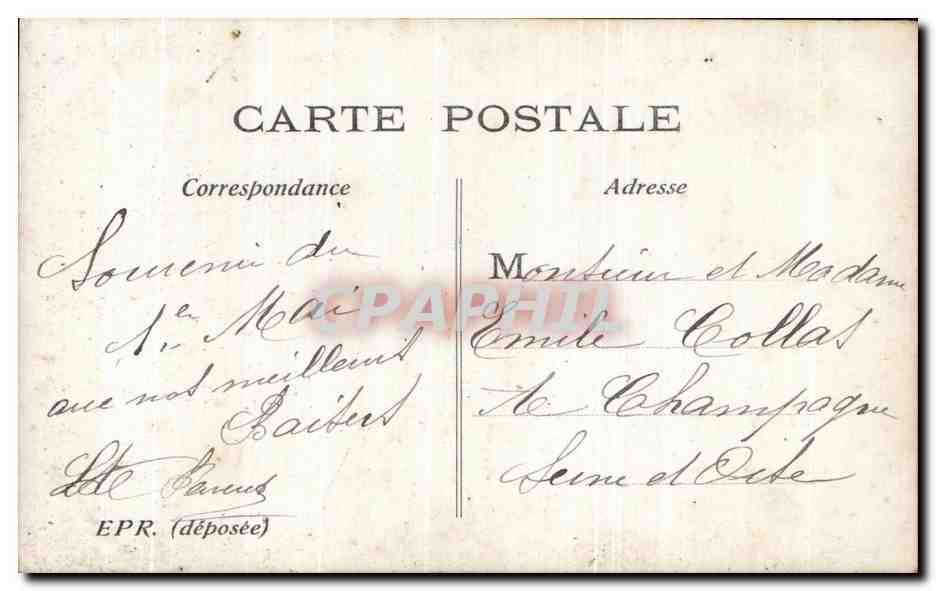 CARTE POSTALE
Correspondance
Souvenir du
1er Mai
avec nos meilleurs
Baisers
EPR. (déposée)
Adresse
Monsieur et Madame
Emile Collas
A Champagne
Seine et Oise
CPAPHIL